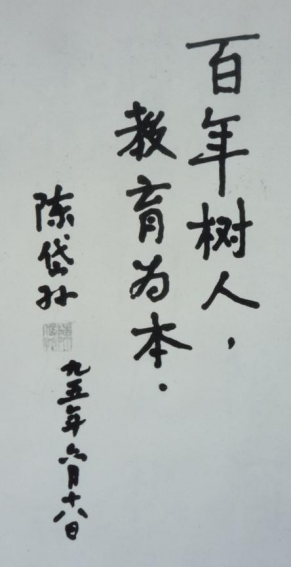 百年树人，
教育为本.
陈岱孙
九五年六月十八日